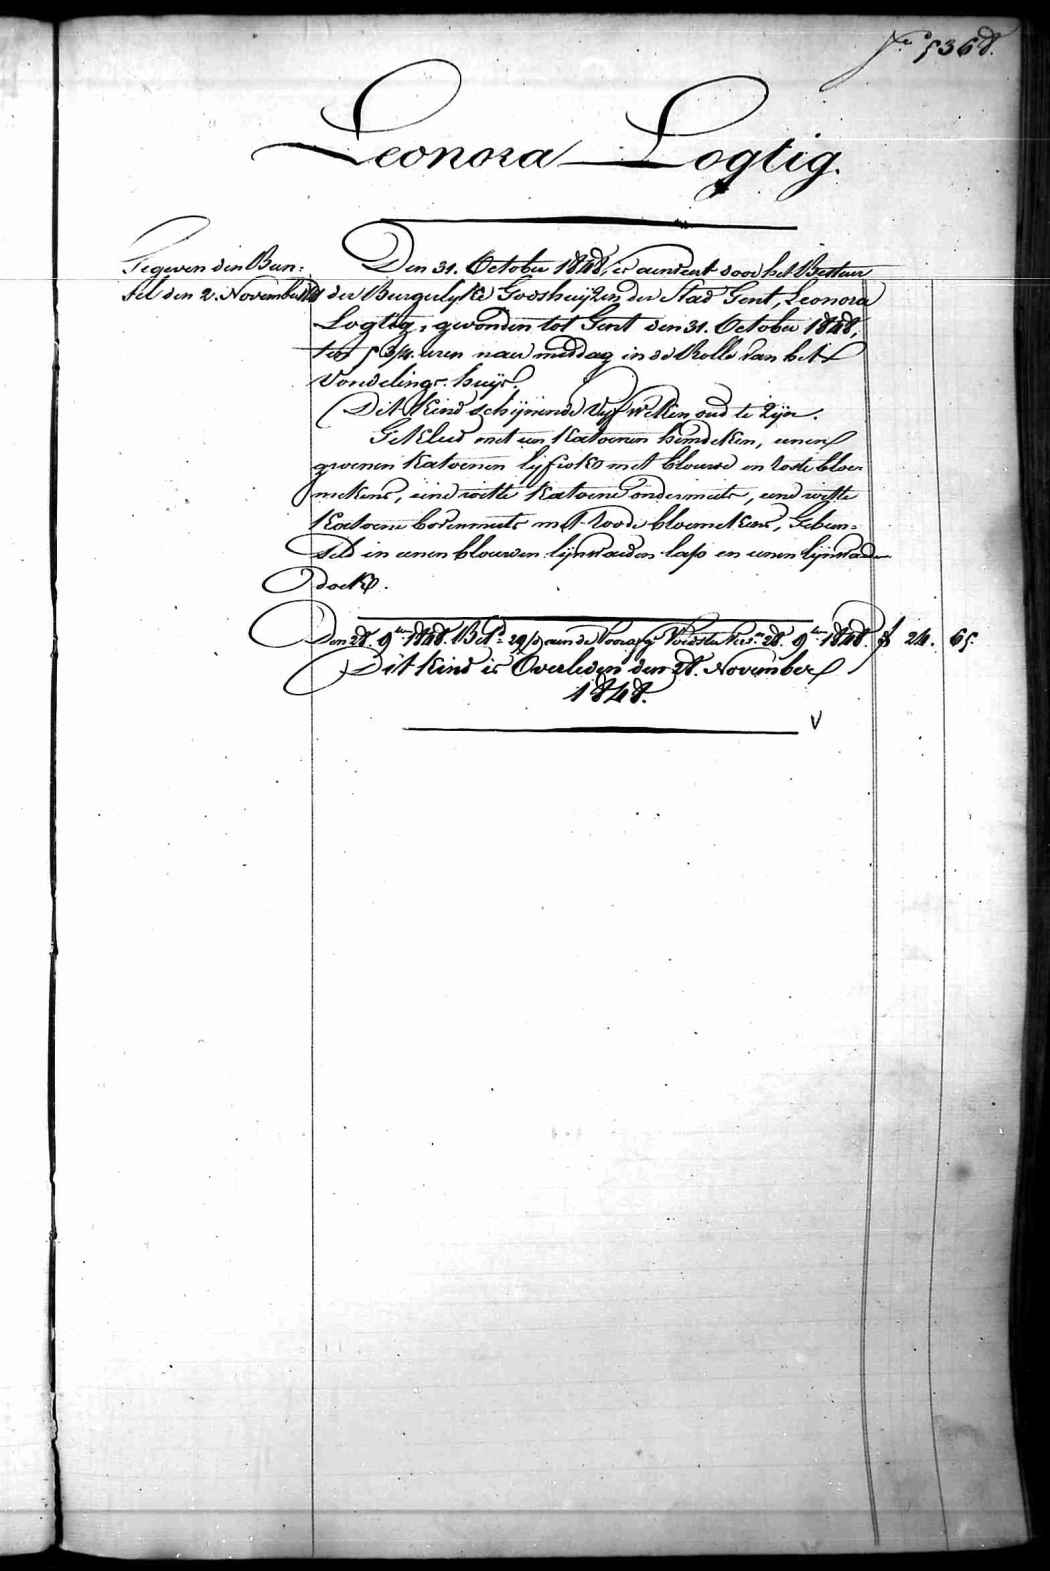 Fo. 5368.
Leonora Logtig.
Gegeven den Bun=
sel den 2. November 1848
Den 31. October 1848, is aenveert door het Bestuer
der Burgerlyke Godshuijzen der Stad Gent, Leonora
Logtig, gevonden tot Gent den 31. October 1848,
ten 5 3/4. uren naer middag in de Rolle van het
Vondelings-huijs.
Dit Kind schijnende vyf weken oud te zijn.
Gekleed met een Katoenen hemdeken, eenen
groenen Katoenen lyfrok met blouwe en rode bloe-
mekens, eene witte Katoene ondermuts, eene witte
Katoene bovenmuts met roode bloemekens, Gebun=
seld in eenen blouwen lijnwaeden lasp en eenen lijnwaeden
doek.
Den 28. 9ber 1848. Bet. 29/3 aen de Voorzorg Voedster 28. 9ber 1848. f 24. 65.
Dit kind is Overleden den 28. November
1848.
V